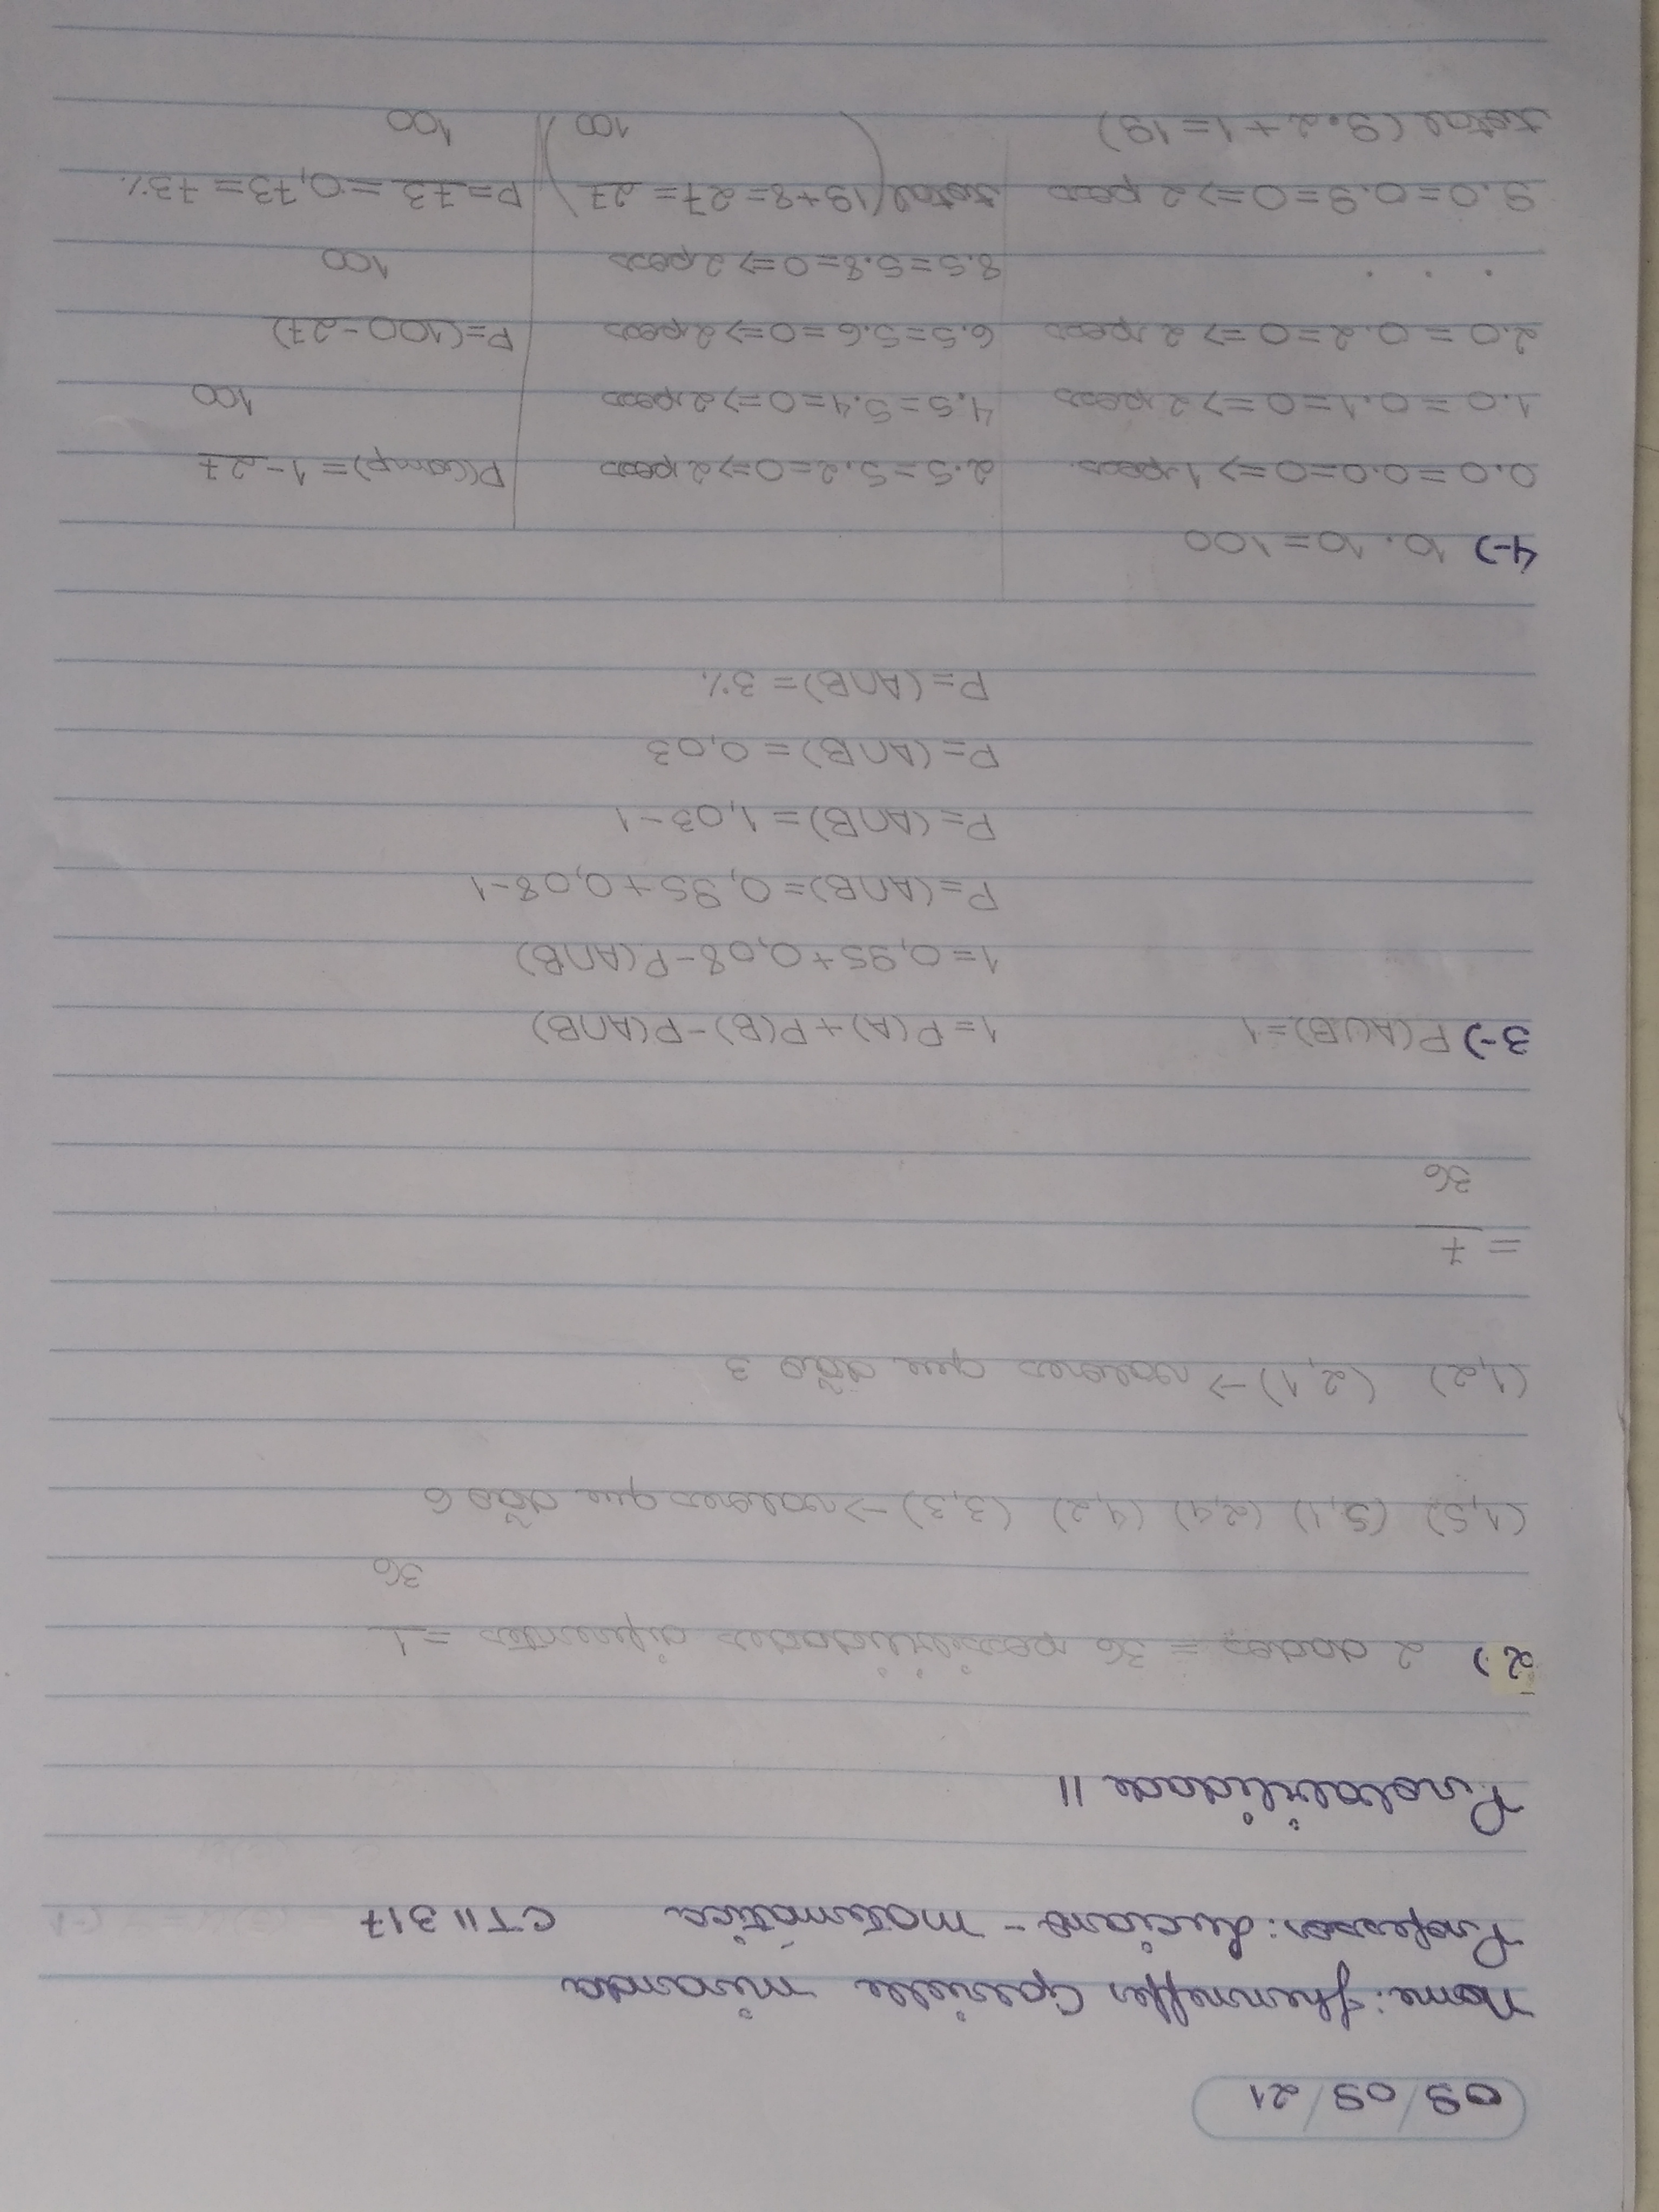 09/09/21
Nome: Jhenneffer Gabrielle miranda
Professor: Luciano - matemática CTII 317
Probabilidade II
2-) 2 dados = 36 possibilidades diferentes = 1
36
(1,5) (5,1) (2,4) (4,2) (3,3) -> valores que dão 6
(1,2) (2,1) -> valores que dão 3
= 7
36
3-) P(A∪B)=1 1=P(A)+P(B)-P(A∩B)
1=0,95+0,08-P(A∩B)
P=(A∩B)=0,95+0,08-1
P=(A∩B)=1,03-1
P=(A∩B)=0,03
P=(A∩B)=3%
4-) 10.10=100
0.0=0.0=0=>1 poss.
1.0=0.1=0=>2 poss
2.0=0.2=0=>2 poss
. . .
9.0=0.9=0=>2 poss
total (9.2+1=19)
2.5=5.2=0=>2 poss
4.5=5.4=0=>2 poss
6.5=5.6=0=>2 poss
8.5=5.8=0=>2 poss
total (19+8=27=27
100)
P(comp)=1-27
100
P=(100-27)
100
P=73=0,73=73%
100